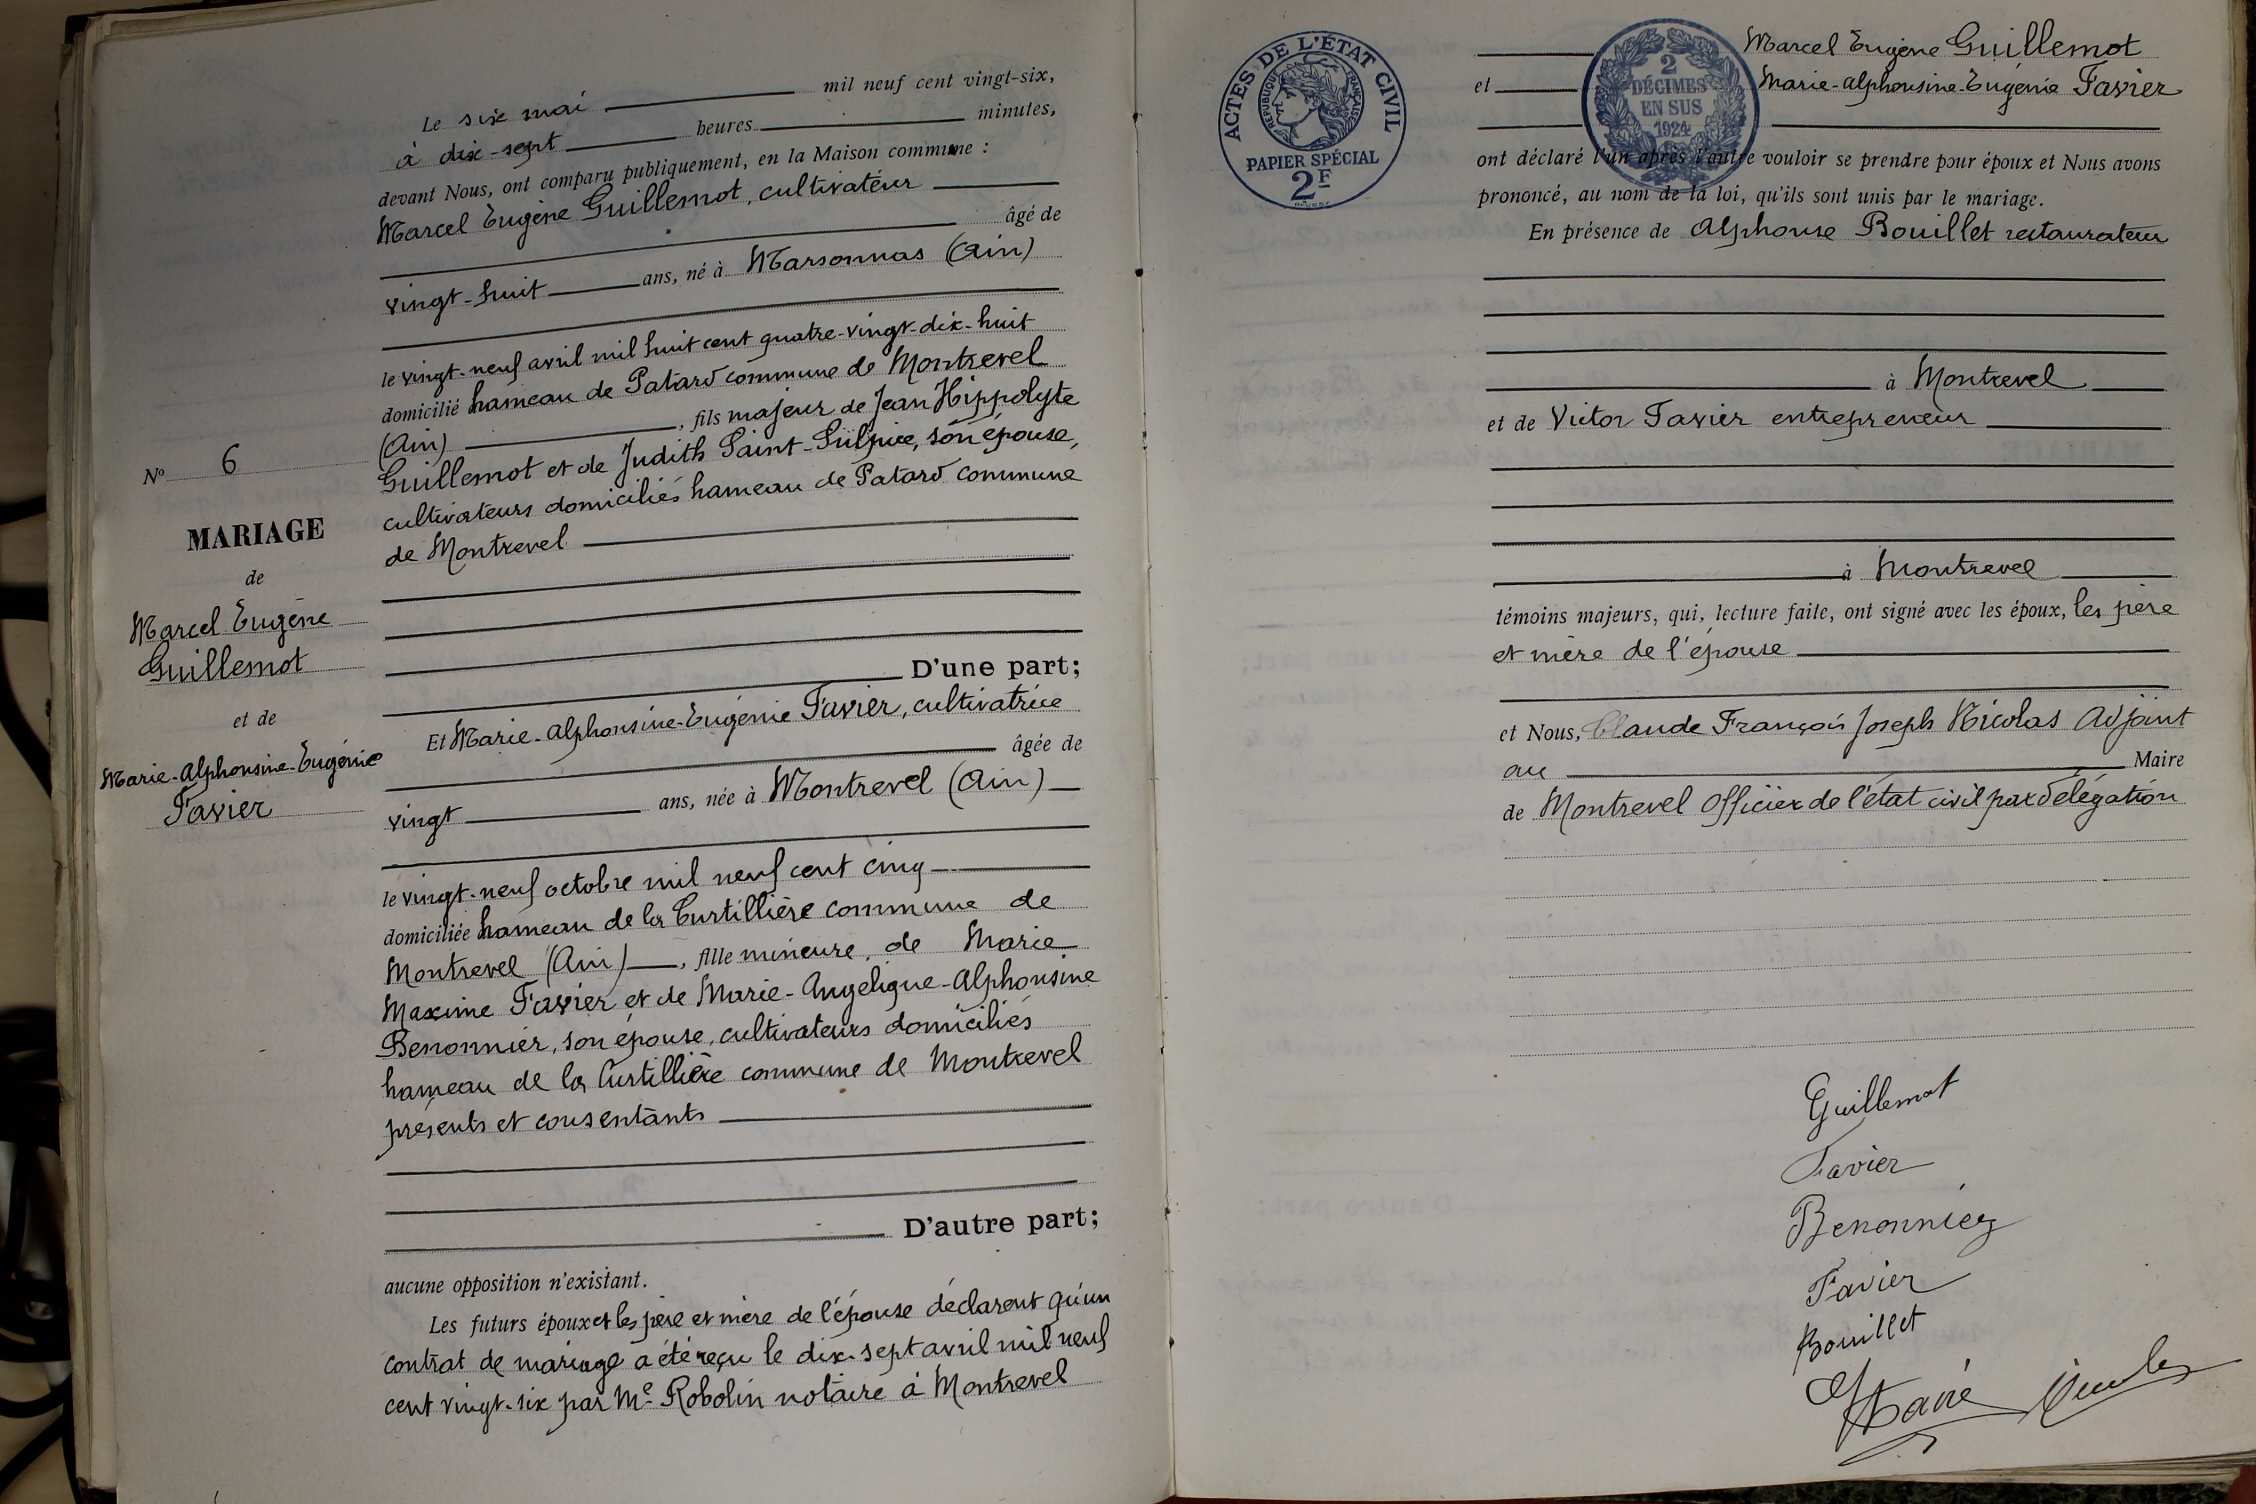 Le six mai mil neuf cent vingt-six,
à dix-sept heures minutes,
devant Nous, ont comparu publiquement, en la Maison commune :
Marcel Eugène Guillemot, cultivateur
âgé de
vingt-huit ans, né à Marsonnas (Ain)
le vingt-neuf avril mil huit cent quatre-vingt-dix-huit
domicilié hameau de Patard commune de Montrevel
(Ain) , fils majeur de Jean Hippolyte
Guillemot et de Judith Saint-Sulpice, son épouse,
cultivateurs domiciliés hameau de Patard commune
de Montrevel
D'une part;
Et Marie-Alphonsine-Eugénie Favier, cultivatrice
âgée de
vingt ans, née à Montrevel (Ain)
le vingt-neuf octobre mil neuf cent cinq
domiciliée hameau de la Curtillière commune de
Montrevel (Ain) , fille mineure, de Marie
Maxime Favier et de Marie-Angelique-Alphonsine
Benonnier, son épouse, cultivateurs domiciliés
hameau de la Curtillière commune de Montrevel
présents et consentants
D'autre part;
aucune opposition n'existant.
Les futurs époux et les père et mère de l'épouse déclarent qu'un
contrat de mariage a été reçu le dix-sept avril mil neuf
cent vingt-six par Me Robolin notaire à Montrevel
No 6
MARIAGE
de
Marcel Eugène
Guillemot
et de
Marie-Alphonsine-Eugénie
Favier
ACTES DE L'ÉTAT CIVIL
RÉPUBLIQUE FRANÇAISE
PAPIER SPÉCIAL
2F
2
DÉCIMES
EN SUS
1924
Marcel Eugène Guillemot
et Marie-Alphonsine-Eugénie Favier
ont déclaré l'un après l'autre vouloir se prendre pour époux et Nous avons
prononcé, au nom de la loi, qu'ils sont unis par le mariage.
En présence de Alphonse Bouillet restaurateur
à Montrevel
et de Victor Favier entrepreneur
à Montrevel
témoins majeurs, qui, lecture faite, ont signé avec les époux, les père
et mère de l'épouse
et Nous, Claude François Joseph Nicolas Adjoint
au Maire
de Montrevel officier de l'état civil par délégation
Guillemot
Favier
Benonnier
Favier
Bouillet